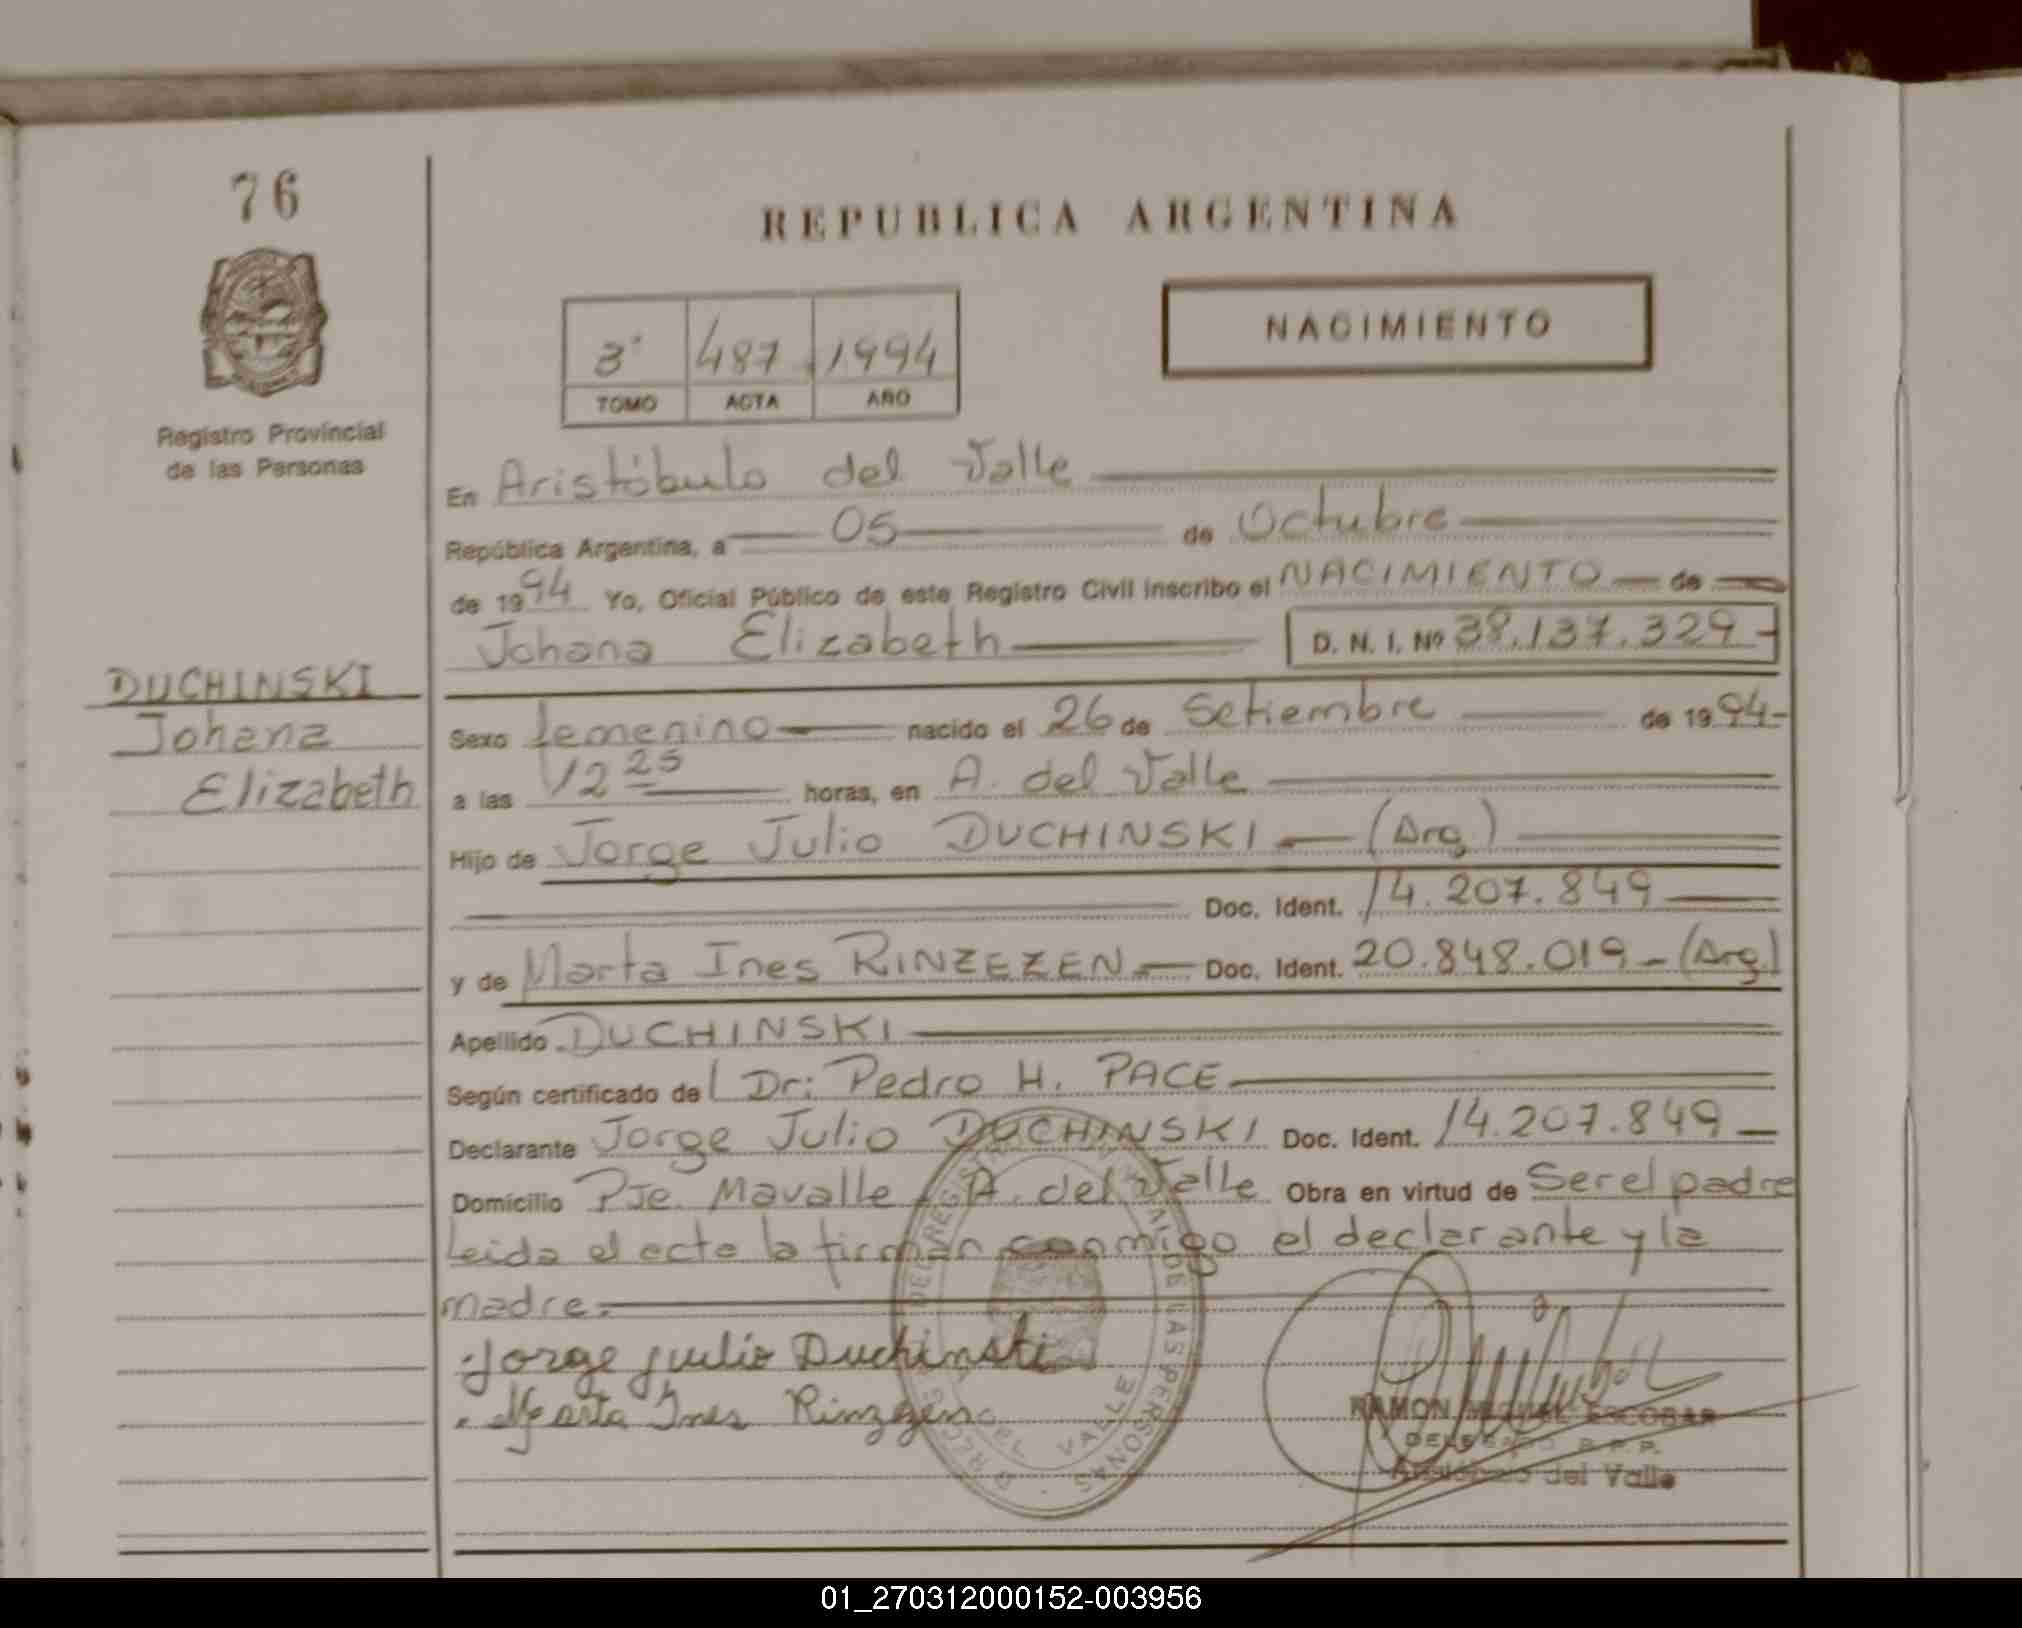 76
REPUBLICA ARGENTINA
NACIMIENTO
3° 487 1994
TOMO ACTA AÑO
Registro Provincial
de las Personas
DUCHINSKI
Johana
Elizabeth
En Aristóbulo del Valle
República Argentina, a 05 de Octubre
de 1994 Yo, Oficial Público de este Registro Civil inscribo el NACIMIENTO de
Johana Elizabeth D. N. I. Nº 38.137.329-
Sexo femenino nacido el 26 de Setiembre de 1994-
a las 12 25 horas, en A. del Valle
Hijo de Jorge Julio DUCHINSKI (Arg)
Doc. Ident. 14.207.849
y de Marta Ines RINZEZEN Doc. Ident. 20.848.019 - (Arg.)
Apellido DUCHINSKI
Según certificado de l Dr: Pedro H. PACE
Declarante Jorge Julio DUCHINSKI Doc. Ident. 14.207.849
Domicilio Pje. Mavalle A. del Valle Obra en virtud de Ser el padre
Leida el acta la firman conmigo el declarante y la
madre.
Jorge Julio Duchinski
Marta Ines
RAMON MIGUEL ESCOBAR
DELEGADO R.P.P.
Aristóbulo del Valle
DEL REGISTRO PROVINCIAL DE LAS PERSONAS
DEL VALLE
01_270312000152-003956